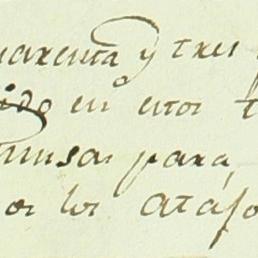 uarenta y tres
ido en estos
mnsas para
os los atajo